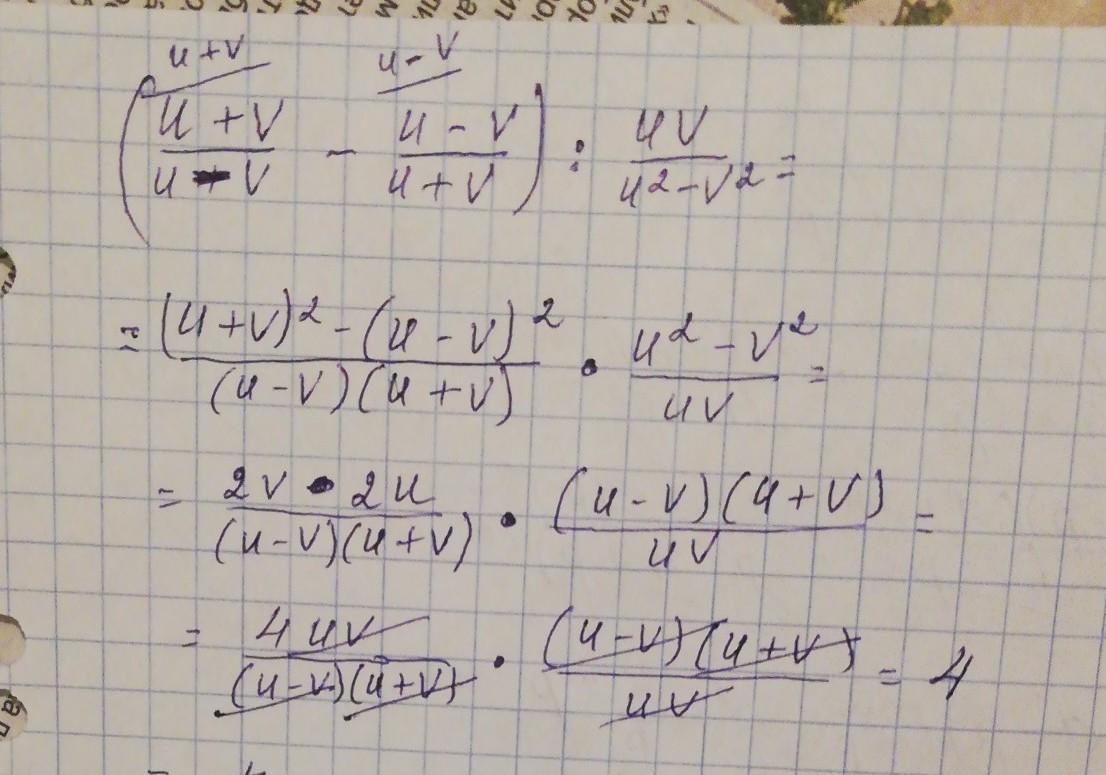 u+v u-v
(u+v/u-v - u-v/u+v) : uv/u²-v² =
= (u+v)²-(u-v)²/(u-v)(u+v) • u²-v²/uv =
= 2v • 2u/(u-v)(u+v) • (u-v)(u+v)/uv =
= 4uv/(u-v)(u+v) • (u-v)(u+v)/uv = 4